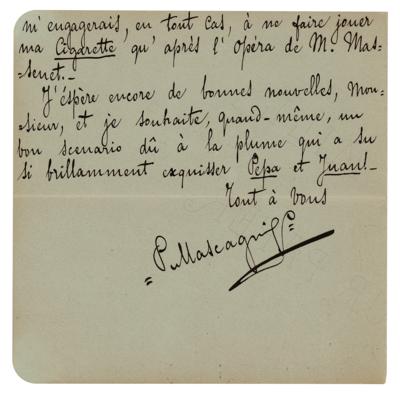 m'engagerais, en tout cas, à ne faire jouer
ma Cigarette qu'après l'Opéra de M. Mas-
senet.-
J'éspère encore de bonnes nouvelles, Mon-
sieur, et je souhaite, quand-même, un
bon scenario dû à la plume qui a su
si brillamment exquisser Pepa et Juan!-
Tout à Vous
P. Mascagni